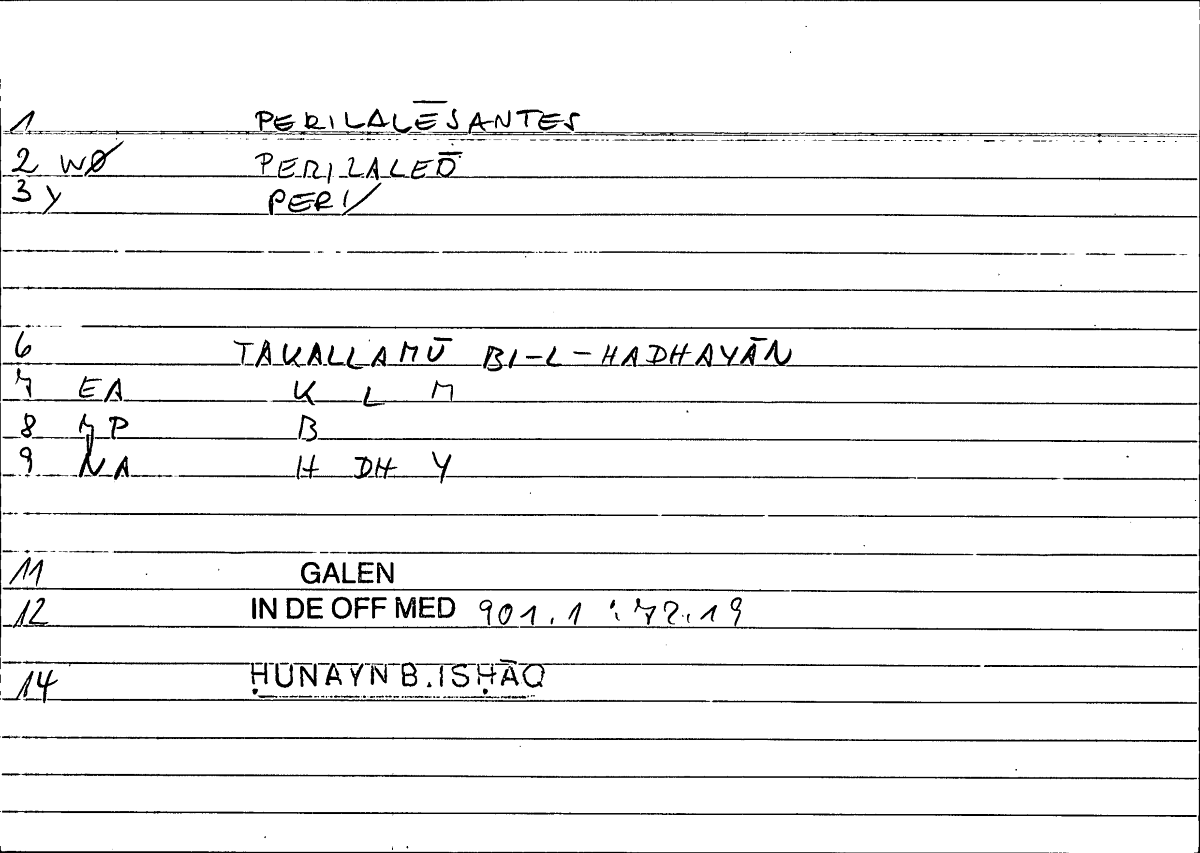 1 PERILALĒSANTES
2 WØ PERILALEŌ
3 Y PERI/
6 TAKALLAMŪ BI-L-HADHAYĀN
7 EA K L M
8 MP B
9 NA H DH Y
11 GALEN
12 IN DE OFF MED 901.1 : 72.19
14 ḤUNAYN B. ISḤĀQ